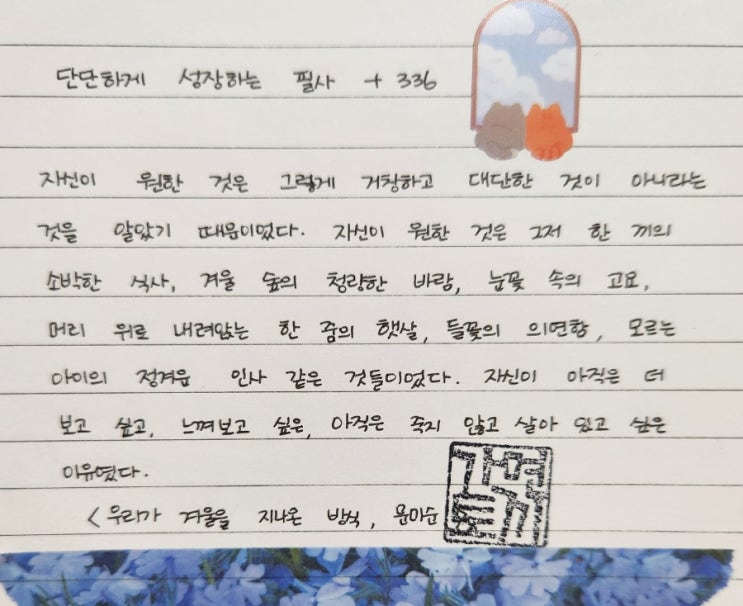 단단하게 성장하는 필사 + 336
자신이 원한 것은 그렇게 거창하고 대단한 것이 아니라는
것을 알았기 때문이었다. 자신이 원한 것은 그저 한 끼의
소박한 식사, 겨울 숲의 청량한 바람, 눈꽃 속의 고요,
머리 위로 내려앉는 한 줌의 햇살, 들꽃의 의연함, 모르는
아이의 정겨운 인사 같은 것들이었다. 자신이 아직은 더
보고 싶고, 느껴보고 싶은, 아직은 죽지 않고 살아 있고 싶은
이유였다.
< 우리가 겨울을 지나온 방식, 문미순